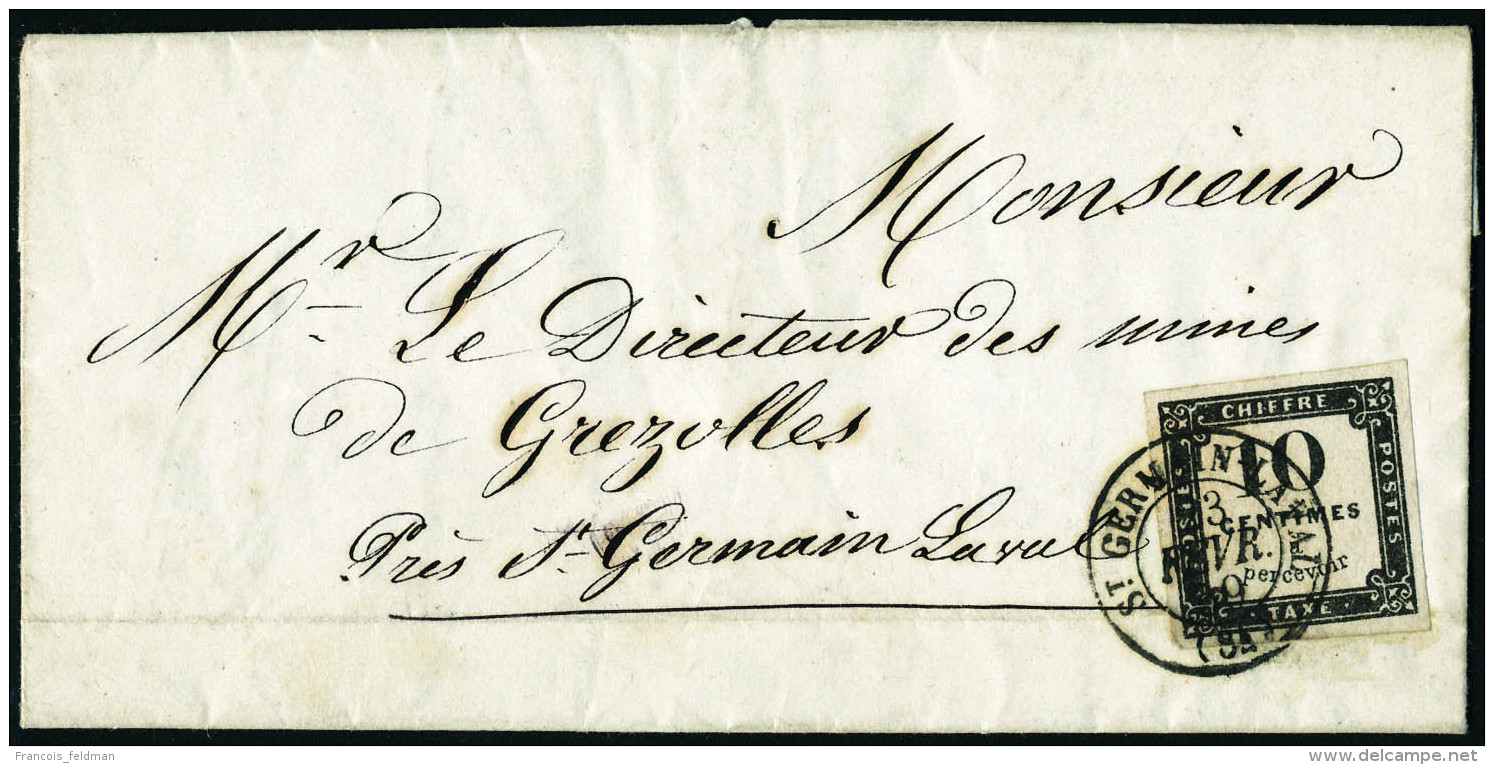 Monsieur
Mr Le Directeur des mines
de Grezolles
Près St Germain Laval
CHIFFRE
10
CENTIMES
percevoir
TAXE
POSTES
ST GERMAIN-LAVAL
3
FEVR.
Francois_feldman
delcampe.net